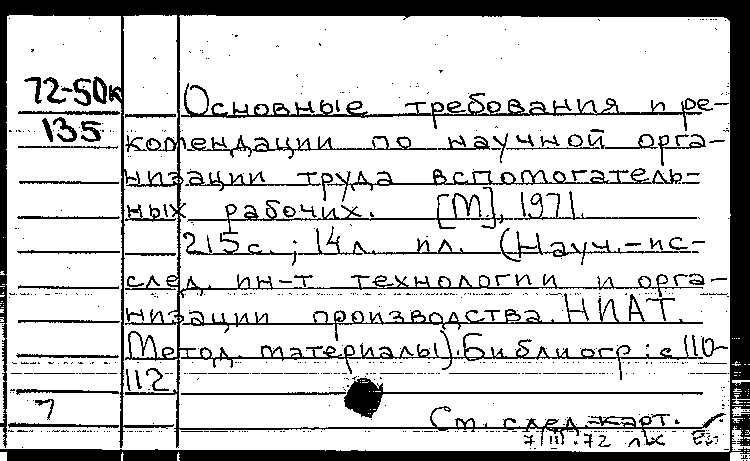 72-50к
135
Основные требования и ре-
комендации по научной орга-
низации труда вспомогатель-
ных рабочих. [М], 1971.
215с.; 14л. ил. (Науч.-ис-
след. ин-т технологии и орга-
низации производства. НИАТ.
Метод. материалы). Библиогр: с 110-
112
7
См. след. карт.
7/III-72